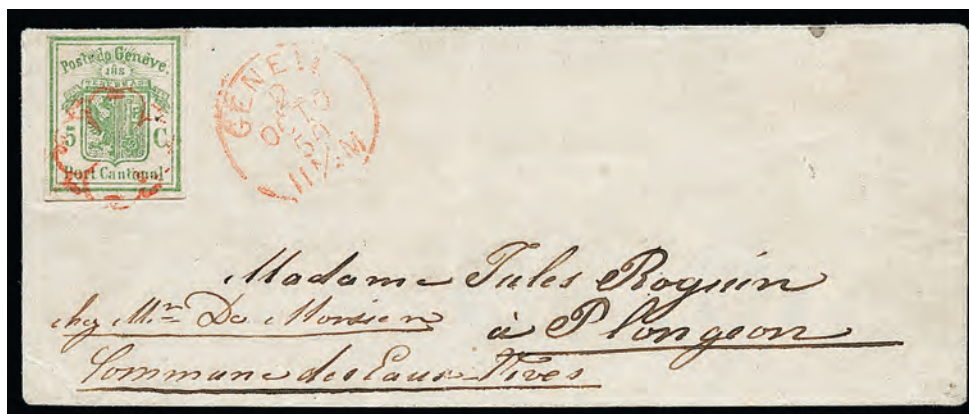 Poste de Genève.
5 C
Port Cantonal
GENEV
2
OCTO
50
11 M
Madame Jules Roguin
chez Mr. De Morsier
à Plongeon
Commune des Eaux-Vives